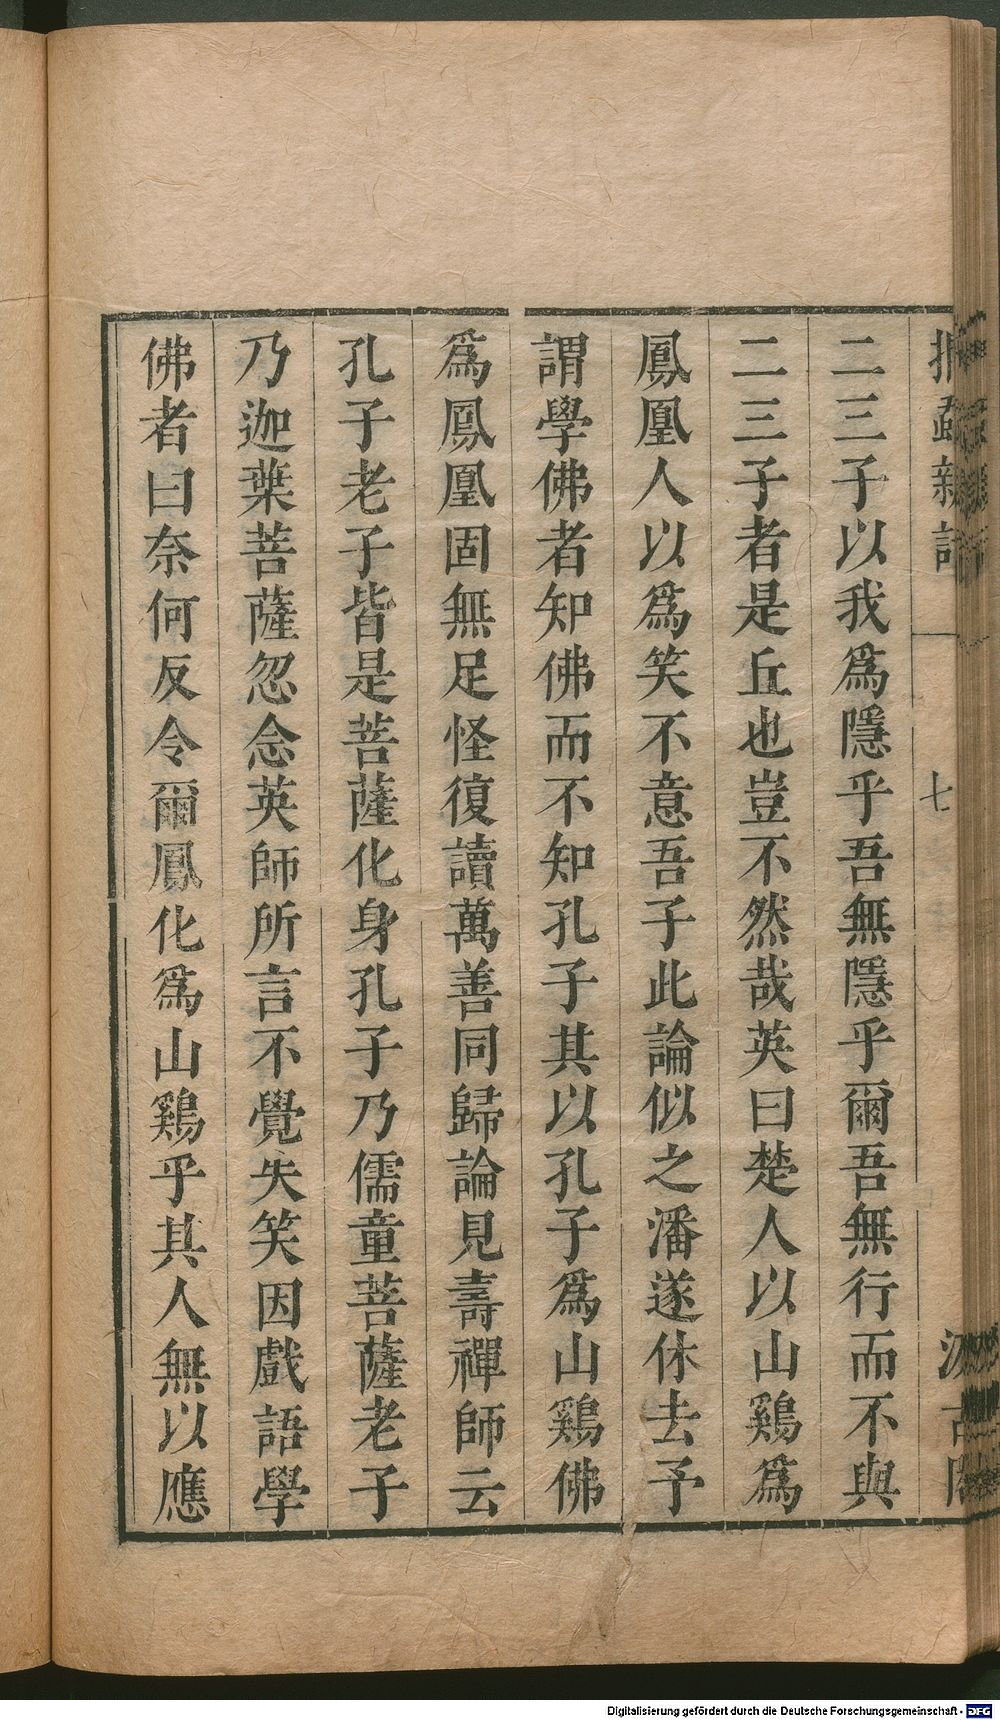 捫蝨新話
七
汲古閣
二三子以我爲隱乎吾無隱乎爾吾無行而不與
二三子者是丘也豈不然哉英曰楚人以山鷄爲
鳳凰人以爲笑不意吾子此論似之潘遂休去予
謂學佛者知佛而不知孔子其以孔子爲山鷄佛
爲鳳凰固無足怪復讀萬善同歸論見壽禪師云
孔子老子皆是菩薩化身孔子乃儒童菩薩老子
乃迦葉菩薩忽念英師所言不覺失笑因戲語學
佛者曰奈何反令爾鳳化爲山鷄乎其人無以應
Digitalisierung gefördert durch die Deutsche Forschungsgemeinschaft - DFG